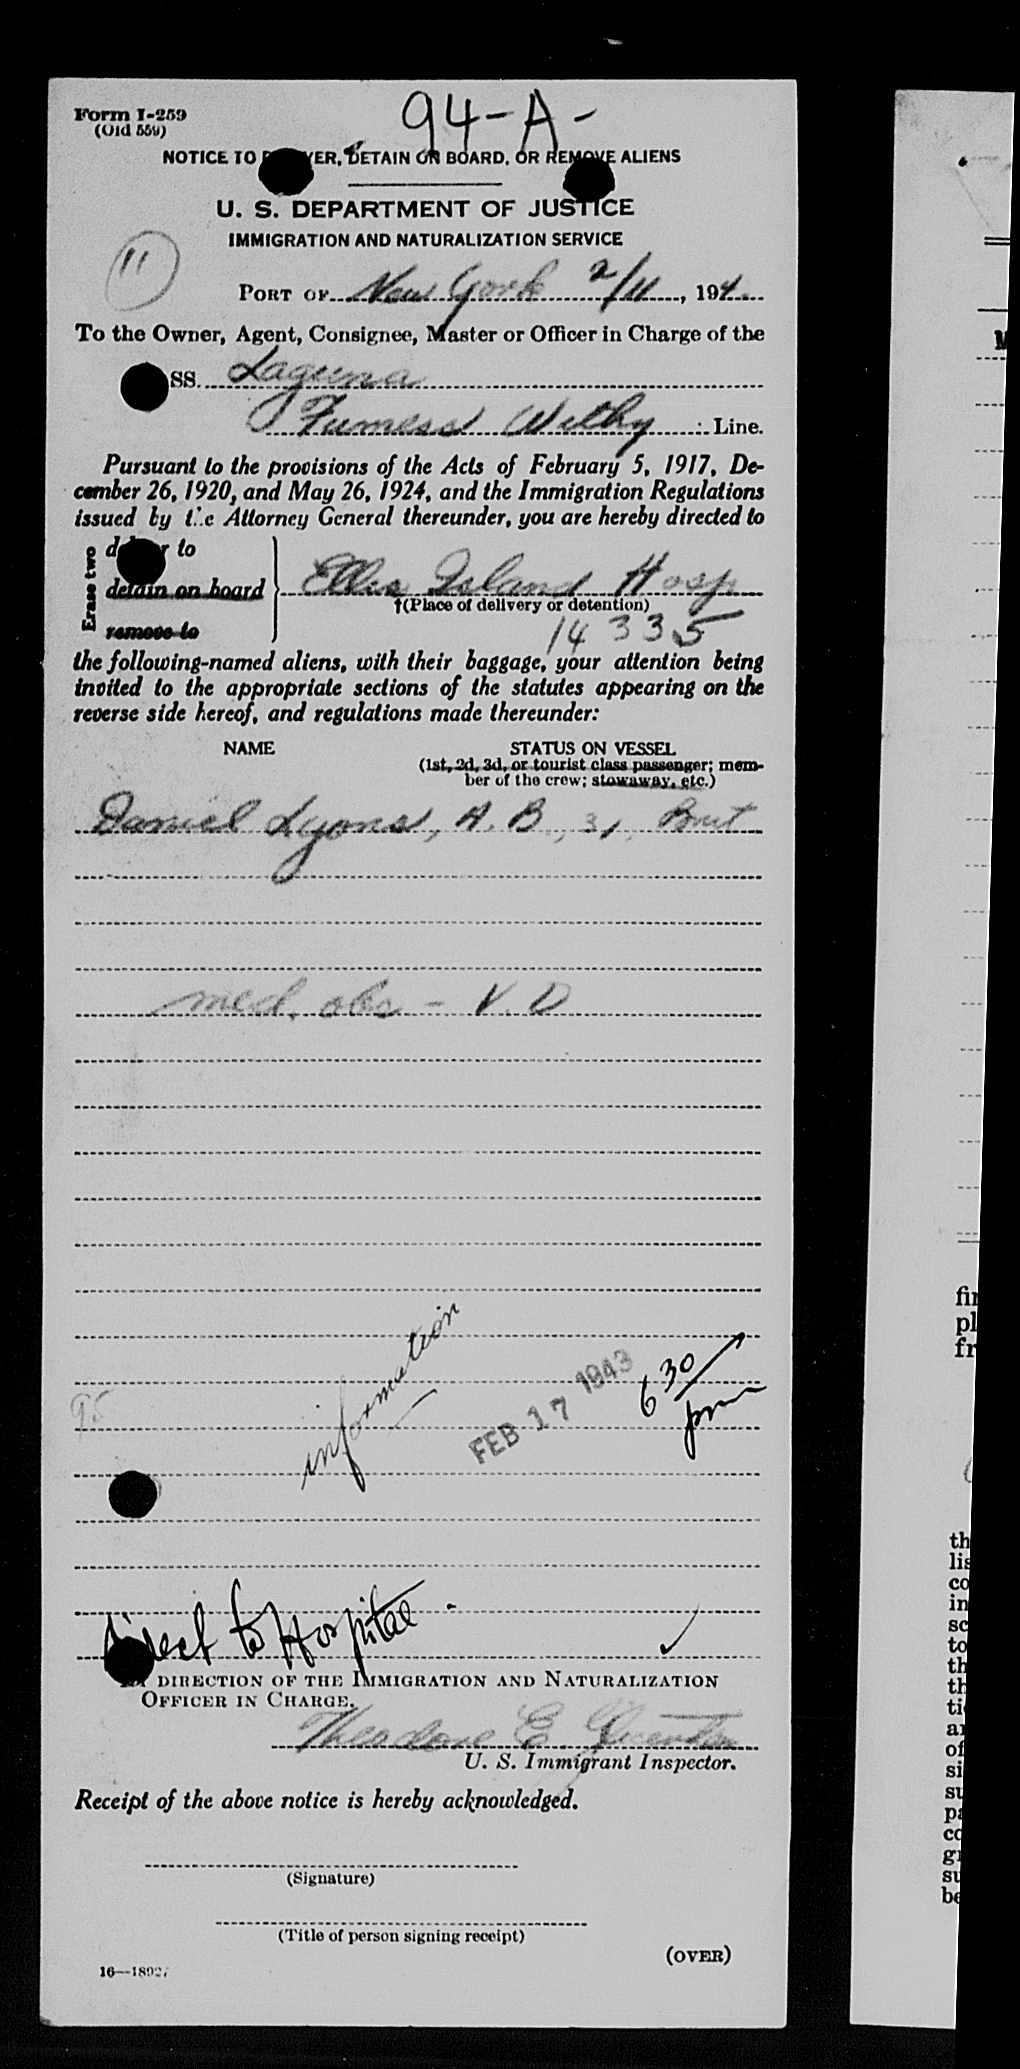 Form I-259
(Old 559)
94-A-
NOTICE TO DELIVER, DETAIN ON BOARD, OR REMOVE ALIENS
U. S. DEPARTMENT OF JUSTICE
IMMIGRATION AND NATURALIZATION SERVICE
11
PORT OF New York 2/11, 194
To the Owner, Agent, Consignee, Master or Officer in Charge of the
SS. Laguna
Furness Withy Line.
Pursuant to the provisions of the Acts of February 5, 1917, De-
cember 26, 1920, and May 26, 1924, and the Immigration Regulations
issued by the Attorney General thereunder, you are hereby directed to
Erase two
deliver to
detain on board
remove to
Ellis Island Hosp
†(Place of delivery or detention)
14335
the following-named aliens, with their baggage, your attention being
invited to the appropriate sections of the statutes appearing on the
reverse side hereof, and regulations made thereunder:
NAME STATUS ON VESSEL
(1st, 2d, 3d, or tourist class passenger; mem-
ber of the crew; stowaway, etc.)
Daniel Lyons, A. B., 31, Brit
med. obs - V. D
information
FEB 17 1943
6 30 pm
95
Direct to Hospital -
BY DIRECTION OF THE IMMIGRATION AND NATURALIZATION
OFFICER IN CHARGE.
Theodore E.
U. S. Immigrant Inspector.
Receipt of the above notice is hereby acknowledged.
(Signature)
(Title of person signing receipt)
(OVER)
16—18927
fi
pl
fr
th
lis
co
in
sc
to
th
th
ti
a
of
si
su
pa
co
g
su
be